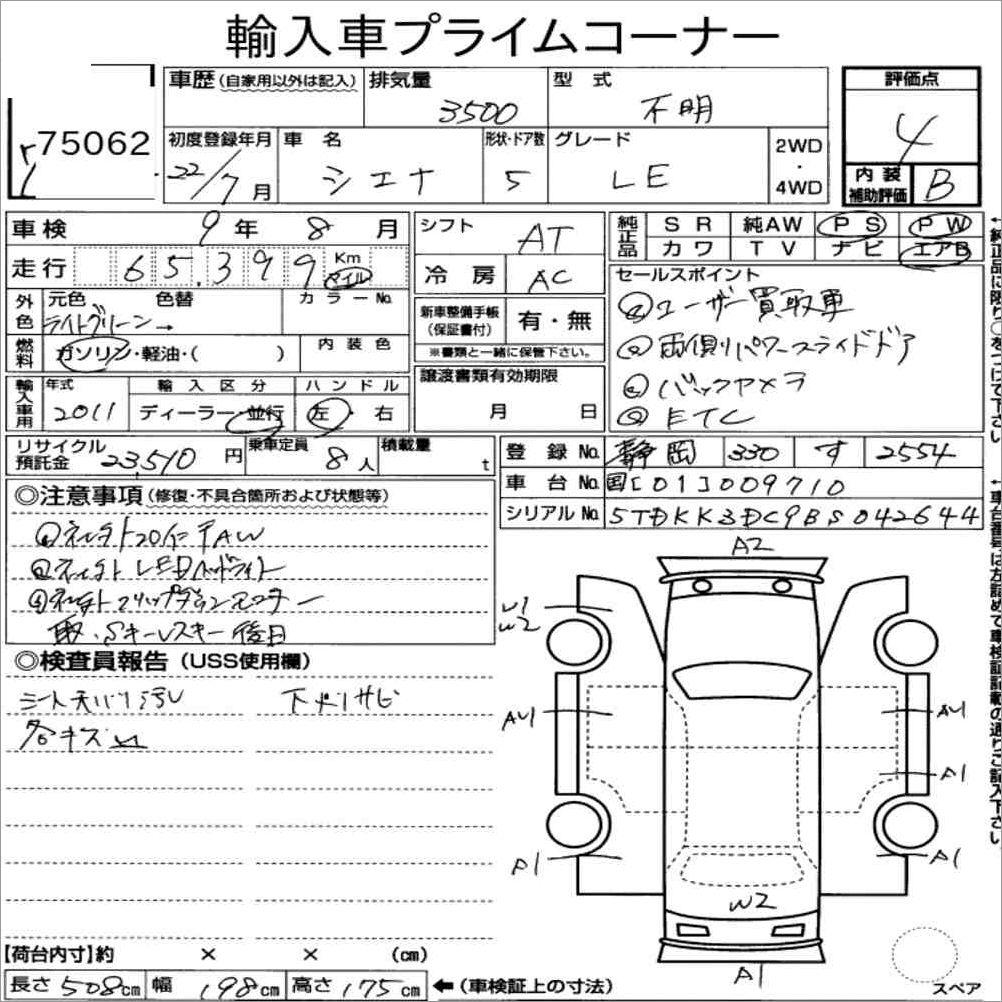 輸入車プライムコーナー
75062
車歴(自家用以外は記入) 排気量 3500 型式 不明 評価点 4
初度登録年月 22/7月 車名 シエナ 形状・ドア数 5 グレード LE 2WD・4WD 内装補助評価 B
車検 9年 8月 シフト AT 純正品 SR 純AW PS PW
カワ TV ナビ エアB
走行 65,399 Km マイル 冷房 AC
セールスポイント
ユーザー買取車
両側パワースライドドア
バックカメラ
ETC
外色 元色 色替 カラーNo.
ライトグリーン→
新車整備手帳(保証書付) 有・無
※書類と一緒に保管下さい。
燃料 ガソリン・軽油・( ) 内装色
輸入車用 年式 2011 輸入区分 ディーラー・並行 ハンドル 左・右
譲渡書類有効期限 月 日
リサイクル預託金 23,510円 乗車定員 8人 積載量 t
登録No. 静岡 330 す 2554
車台No. 国[01]009710
シリアルNo. 5TDKK3DC9BS042644
◎注意事項(修復・不具合箇所および状態等)
社外20インチAW
LEDヘッドライト
フリップダウンモニター
取・Sキーレスキー後日
◎検査員報告(USS使用欄)
シート天バリ汚レ 下廻リサビ
各キズ
A2
W1
W2
AU1
AU1
A1
A1
A1
W2
A1
スペア
【荷台内寸】約 × × (cm)
長さ 508cm 幅 198cm 高さ 175cm ←(車検証上の寸法)
←純正品に限り○をつけて下さい
←車台番号は左詰めで車検証記載の通りご記入下さい。